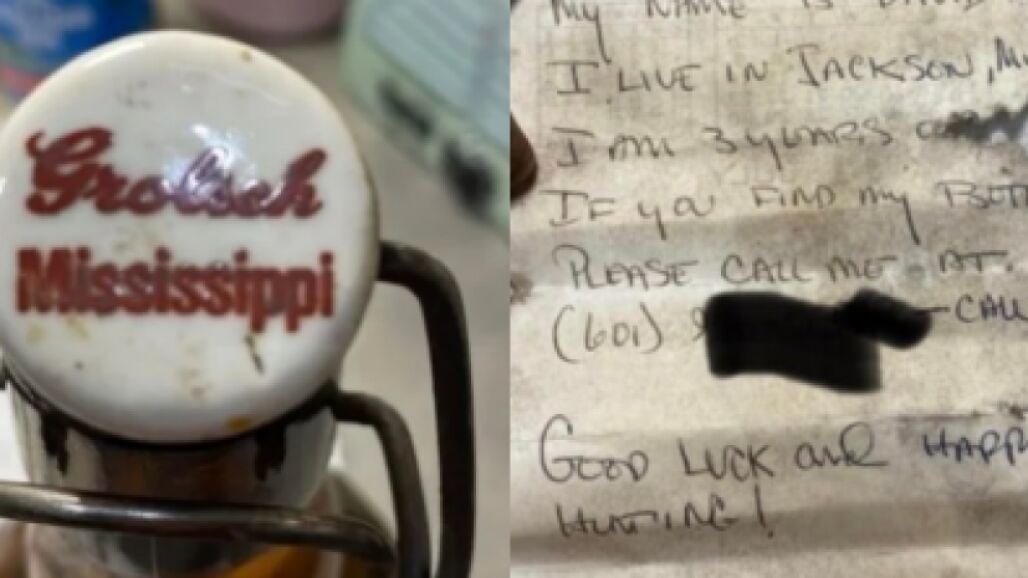 Grolsch
Mississippi
MY NAME IS
I LIVE IN JACKSON,
I AM 3 YEARS
IF YOU FIND MY
PLEASE CALL ME AT.
(601) - CALL
GOOD LUCK and
HUNTING!